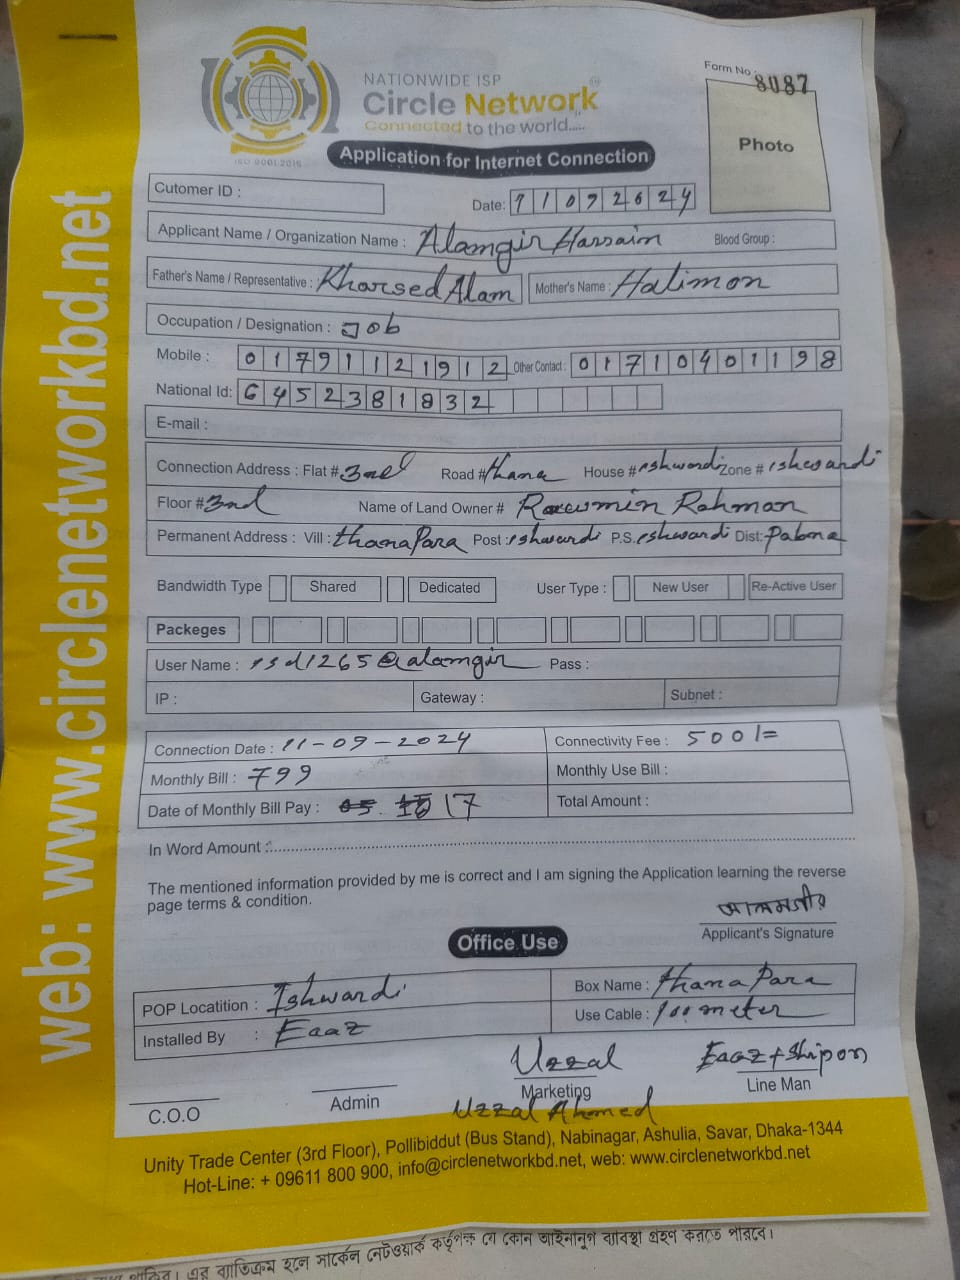 web: www.circlenetworkbd.net
NATIONWIDE ISP
Circle Network
Connected to the world.....
ISO 9001:2015
Form No : 8087
Photo
Application for Internet Connection
Cutomer ID :
Date: 11092024
Applicant Name / Organization Name : Alamgir Hassain Blood Group :
Father's Name / Representative : Kharsed Alam Mother's Name : Halimon
Occupation / Designation : Job
Mobile : 01791121912 Other Contact : 01710401198
National Id: 6452381832
E-mail :
Connection Address : Flat # 3nd Road # thana House # eshwardi Zone # ishwardi
Floor # 3nd Name of Land Owner # Rahman
Permanent Address : Vill : thanaPara Post : eshwardi P.S. eshwardi Dist: Pabna
Bandwidth Type Shared Dedicated User Type : New User Re-Active User
Packeges
User Name : isd1265@alamgir Pass :
IP : Gateway : Subnet :
Connection Date : 11-09-2024 Connectivity Fee : 500/=
Monthly Bill : 799 Monthly Use Bill :
Date of Monthly Bill Pay : 17 Total Amount :
In Word Amount :
The mentioned information provided by me is correct and I am signing the Application learning the reverse
page terms & condition.
আলমগীর
Applicant's Signature
Office Use
POP Locatition : Ishwardi Box Name : thanaPara
Installed By : Eaaz Use Cable : 100 meter
Uzzal Eaaz + Shipon
C.O.O Admin Marketing Line Man
Uzzal Ahmed
Unity Trade Center (3rd Floor), Pollibiddut (Bus Stand), Nabinagar, Ashulia, Savar, Dhaka-1344
Hot-Line: + 09611 800 900, info@circlenetworkbd.net, web: www.circlenetworkbd.net
এর ব্যাতিক্রম হলে সার্কেল নেটওয়ার্ক কর্তৃপক্ষ যে কোন আইনানুগ ব্যাবস্থা গ্রহণ করতে পারবে।